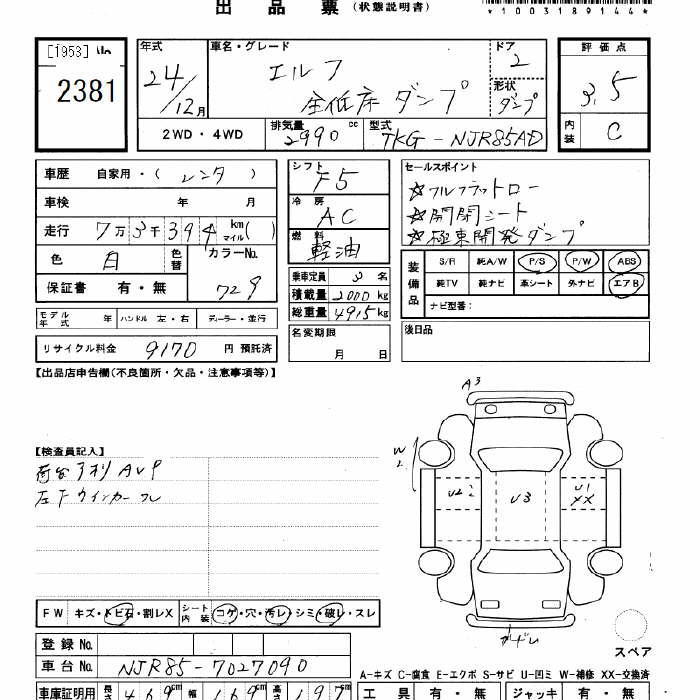 出品票 (状態説明書)
*1003189144*
[1953] No
2381
年式
24/12月
車名・グレード
エルフ
全低床 ダンプ
ドア
2
形状
ダンプ
評価点
3.5
内装
C
2WD・4WD
排気量
2990 cc
型式
TKG-NJR85AD
車歴 自家用・( レンタ )
車検 年 月
走行 7万3千394 km マイル( )
色 白 色替 カラーNo. 729
保証書 有・無
シフト
F5
冷房
AC
燃料
軽油
乗車定員 3名
積載量 2000kg
総重量 4915kg
名変期限
月 日
セールスポイント
☆フルフラットロー
☆開閉シート
☆極東開発ダンプ
装備品
S/R 純A/W P/S P/W ABS
純TV 純ナビ 革シート 外ナビ エアB
ナビ型番:
後日品
モデル年式 年 ハンドル 左・右 ディーラー・並行
リサイクル料金 9170 円 預託済
【出品店申告欄(不良箇所・欠品・注意事項等)】
【検査員記入】
左下ウインカー
A3
W2
U2 2
U3
U1
XX
スペア
FW キズ・トビ石・割レX シート内装 コゲ・穴・汚レ・シミ・破レ・スレ
登録No.
車台No. NJR85-7027090
A-キズ C-腐食 E-エクボ S-サビ U-凹ミ W-補修 XX-交換済
車庫証明用 長さ 469cm 幅 169cm 高さ 197cm
工具 有・無 ジャッキ 有・無